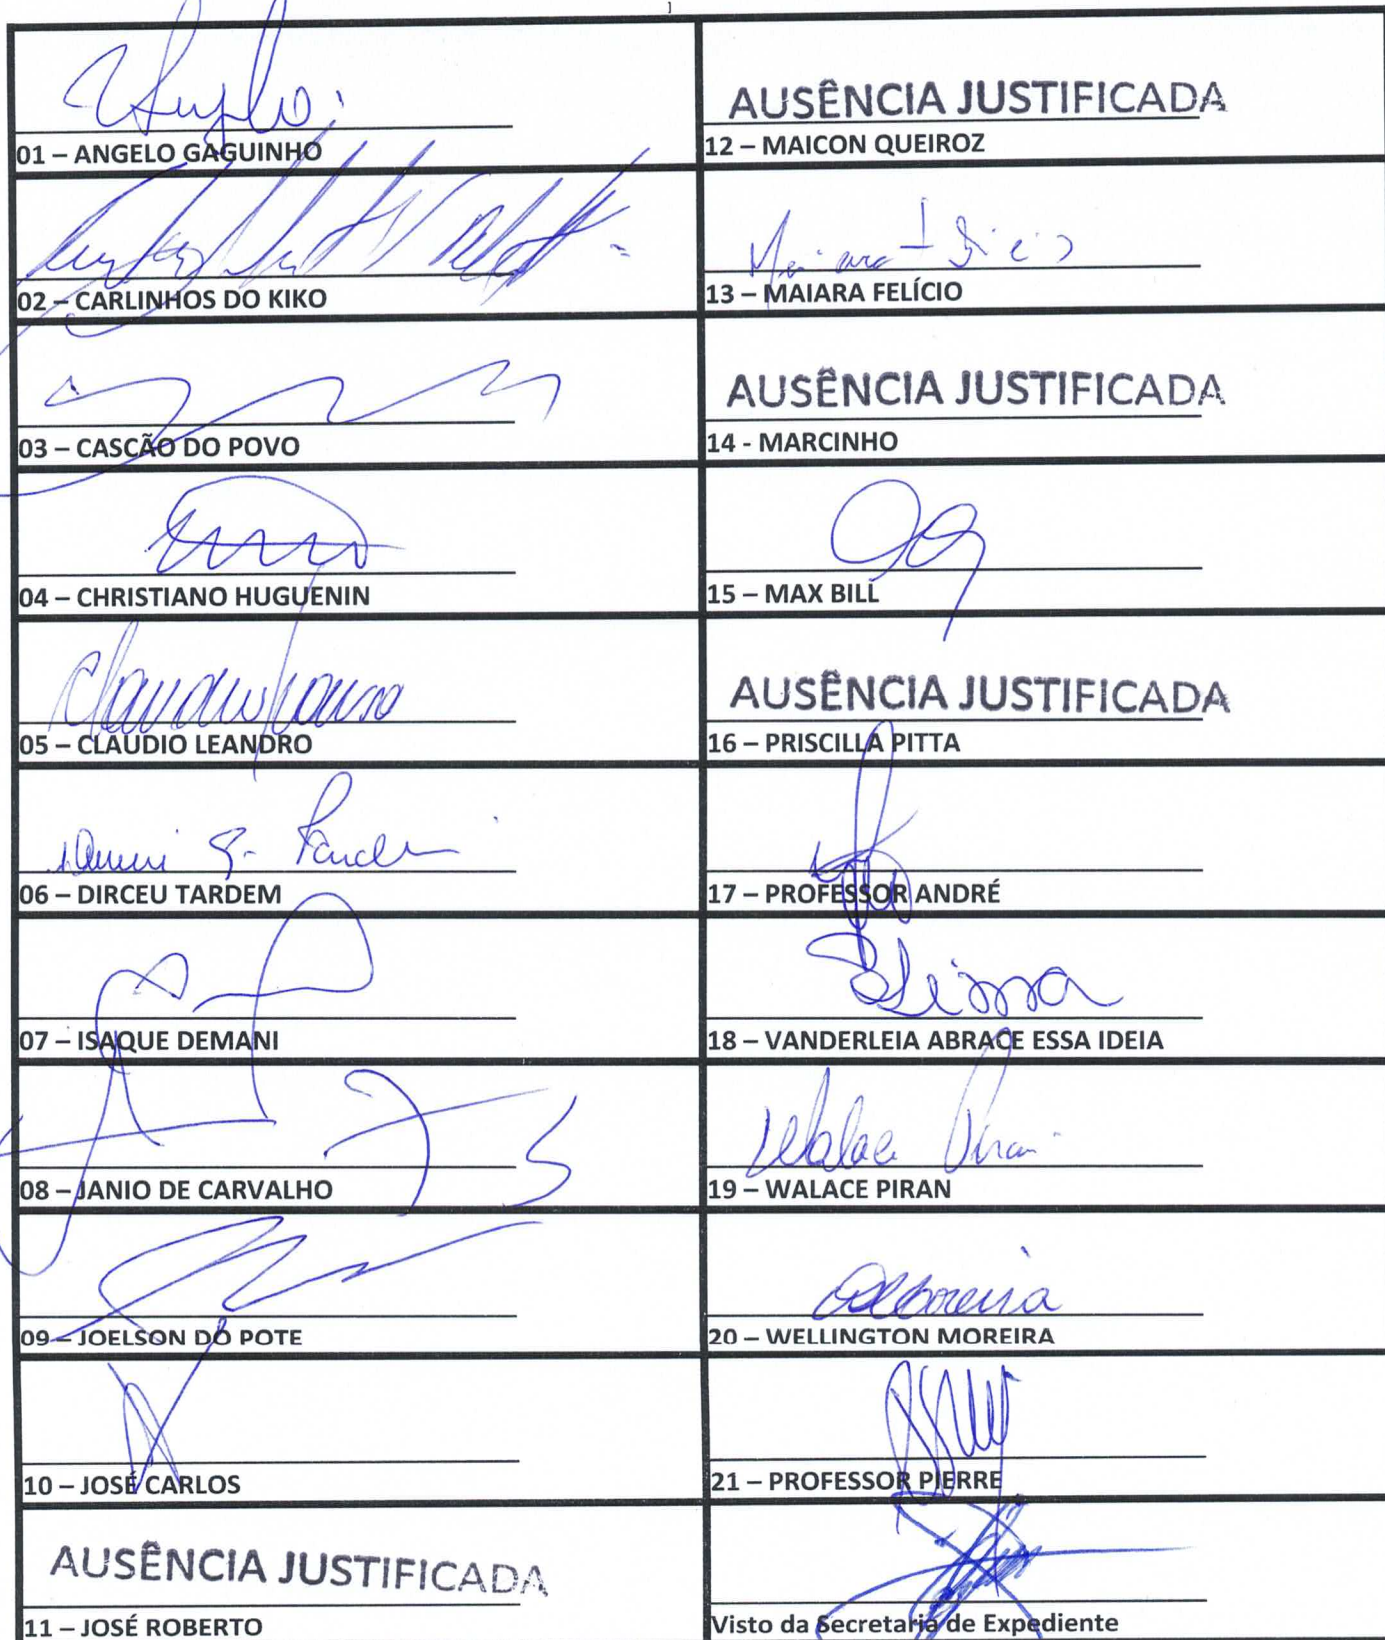 01 – ANGELO GAGUINHO
02 – CARLINHOS DO KIKO
03 – CASCÃO DO POVO
04 – CHRISTIANO HUGUENIN
05 – CLAUDIO LEANDRO
06 – DIRCEU TARDEM
07 – ISAQUE DEMANI
08 – JANIO DE CARVALHO
09 – JOELSON DO POTE
10 – JOSÉ CARLOS
AUSÊNCIA JUSTIFICADA
11 – JOSÉ ROBERTO
AUSÊNCIA JUSTIFICADA
12 – MAICON QUEIROZ
13 – MAIARA FELÍCIO
AUSÊNCIA JUSTIFICADA
14 - MARCINHO
15 – MAX BILL
AUSÊNCIA JUSTIFICADA
16 – PRISCILLA PITTA
17 – PROFESSOR ANDRÉ
18 – VANDERLEIA ABRACE ESSA IDEIA
Walace Piran
19 – WALACE PIRAN
20 – WELLINGTON MOREIRA
21 – PROFESSOR PIERRE
Visto da Secretaria de Expediente